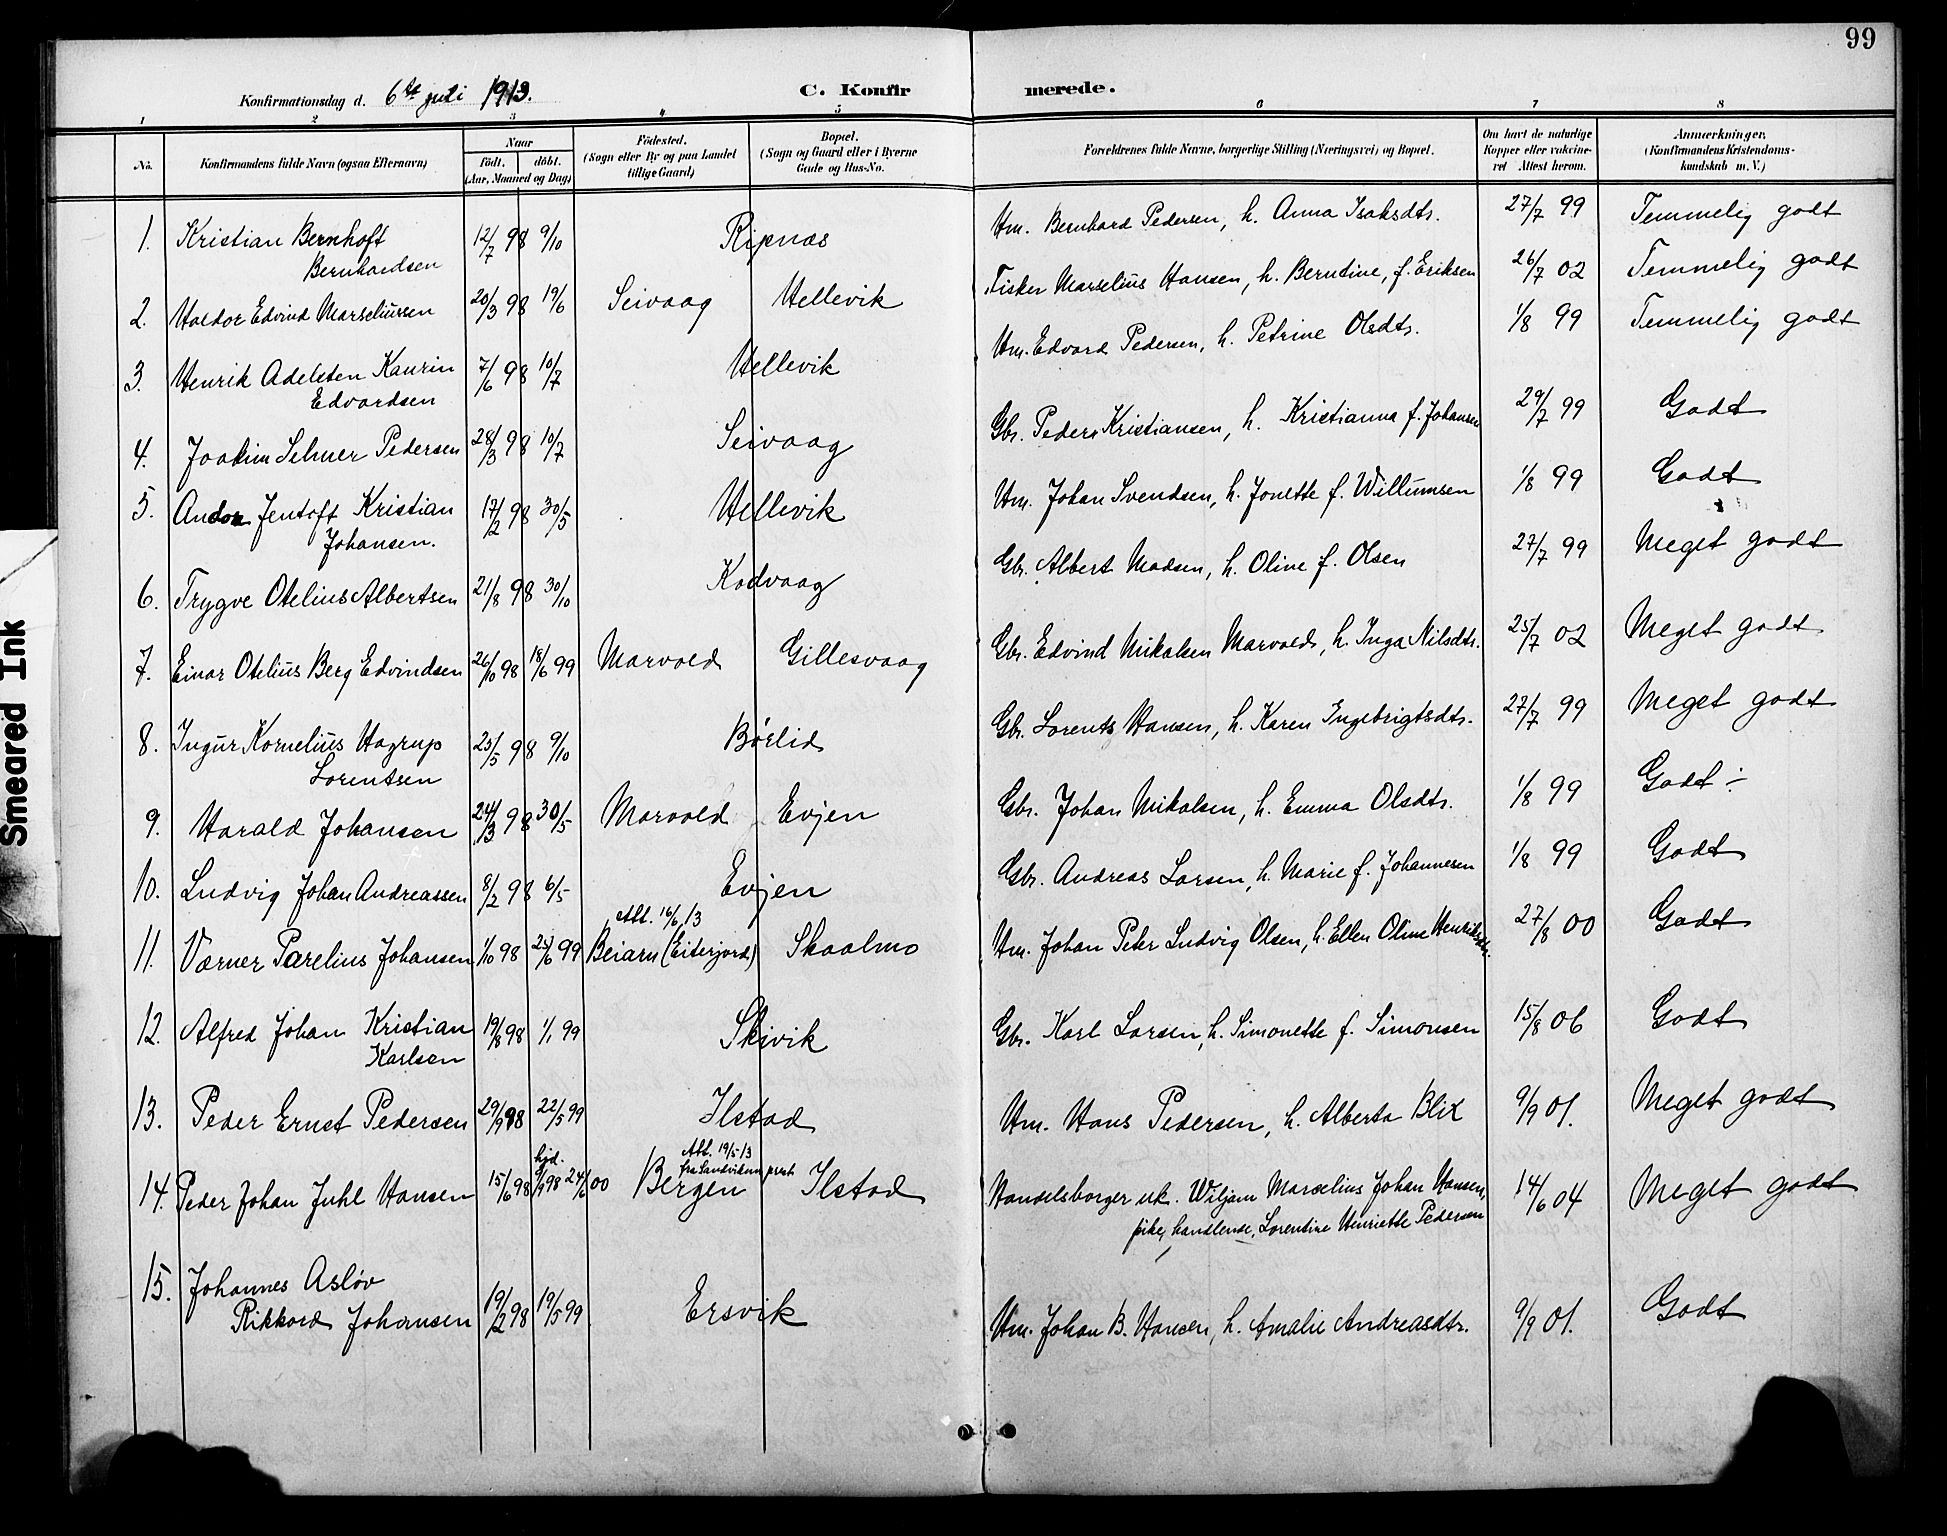 99
Konfirmationsdag d. 6te juli 1913.
C. Konfirmerede.
1 2 3 4 5 6 7 8
No.
Konfirmandens fulde Navn (ogsaa Efternavn)
Naar
födt. döbt.
(Aar, Maaned og Dag)
Födested.
(Sogn eller By og paa Landet
tillige Gaard)
Bopæl.
(Sogn og Gaard eller i Byerne
Gade og Hus-No.
Forældrenes fulde Navne, borgerlige Stilling (Næringsvei) og Bopæl.
Om havt de naturlige
Kopper eller vakcine-
ret Attest herom.
Anmærkninger.
(Konfirmandens Kristendoms-
kundskab m. V.)
1. Kristian Bernhoft 12/7 98 9/10 Ripnæs Um. Bernhard Pedersen, h. Anna Isaksdtr. 27/7 99 Temmelig godt
Bernhardsen
2. Haldor Edvind Marseliussen 20/3 98 19/6 Seivaag Hellevik Fisker Marselius Hansen, h. Berntine, f. Eriksen 26/7 02 Temmelig godt
3. Henrik Adelsten Kaurin 7/6 98 10/7 Hellevik Um. Edvard Pedersen, h. Petrine Olsdtr. 1/8 99 Temmelig godt
Edvardsen
4. Joakim Selmer Pedersen 28/3 98 10/7 Seivaag Gbr. Peder Kristiansen, h. Kristianna f. Johansen 29/7 99 Godt
5. Andor Jentoft Kristian 17/2 98 30/5 Hellevik Um. Johan Svendsen, h. Jonette f. Willumsen 1/8 99 Godt
Johansen.
6. Trygve Otelius Albertsen 21/8 98 30/10 Kodvaag Gbr. Albert Madsen, h. Oline f. Olsen 27/7 99 Meget godt
7. Einar Otelius Berg Edvindsen 26/10 98 18/6 99 Marvold Gillesvaag Gbr. Edvind Mikalsen Marvold, h. Inga Nilsdtr. 25/7 02 Meget godt
8. Ingur Kornelius Hagrup 25/5 98 9/10 Børlid Gbr. Lorents Hansen, h. Karen Ingebrigtsdtr. 27/7 99 Meget godt
Lorentsen
9. Harald Johansen 24/3 98 30/5 Marvold Evjen Gbr. Johan Mikalsen, h. Emma Olsdtr. 1/8 99 Godt ÷
10. Ludvig Johan Andreassen 8/2 98 6/5 Evjen Gbr. Andreas Larsen, h. Marie f. Johannesen 1/8 99 Godt
Att. 16/6 13
11. Værner Parelius Johansen 1/10 98 25/6 99 Beiarn (Eiterjord) Skaalmo Um. Johan Peter Ludvig Olsen, h. Ellen Oline Henriksdtr. 27/8 00 Godt
12. Alfred Johan Kristian 19/8 98 1/1 99 Skivik Gbr. Karl Larsen, h. Simonette f. Simonsen 15/8 06 Godt
Karlsen
13. Peder Ernst Pedersen 29/9 98 22/5 99 Ilstad Um. Hans Pedersen, h. Alberta Blix 9/9 01. Meget godt
hjd. Att. 19/5 13
fra Sandvikens prest
14. Peder Johan Juhl Hansen 15/6 98 9/9 98 24/6 00 Bergen Ilstad Handelsborger uk. Wiljam Marselius Johan Hansen, 14/6 04 Meget godt
pike, handlende, Lorentine Henriette Pedersen
15. Johannes Asløv
Rikkard Johansen 19/2 98 19/5 99 Ersvik Um. Johan B. Hansen, h. Amalie Andreasdtr. 9/9 01. Godt
Smeared Ink